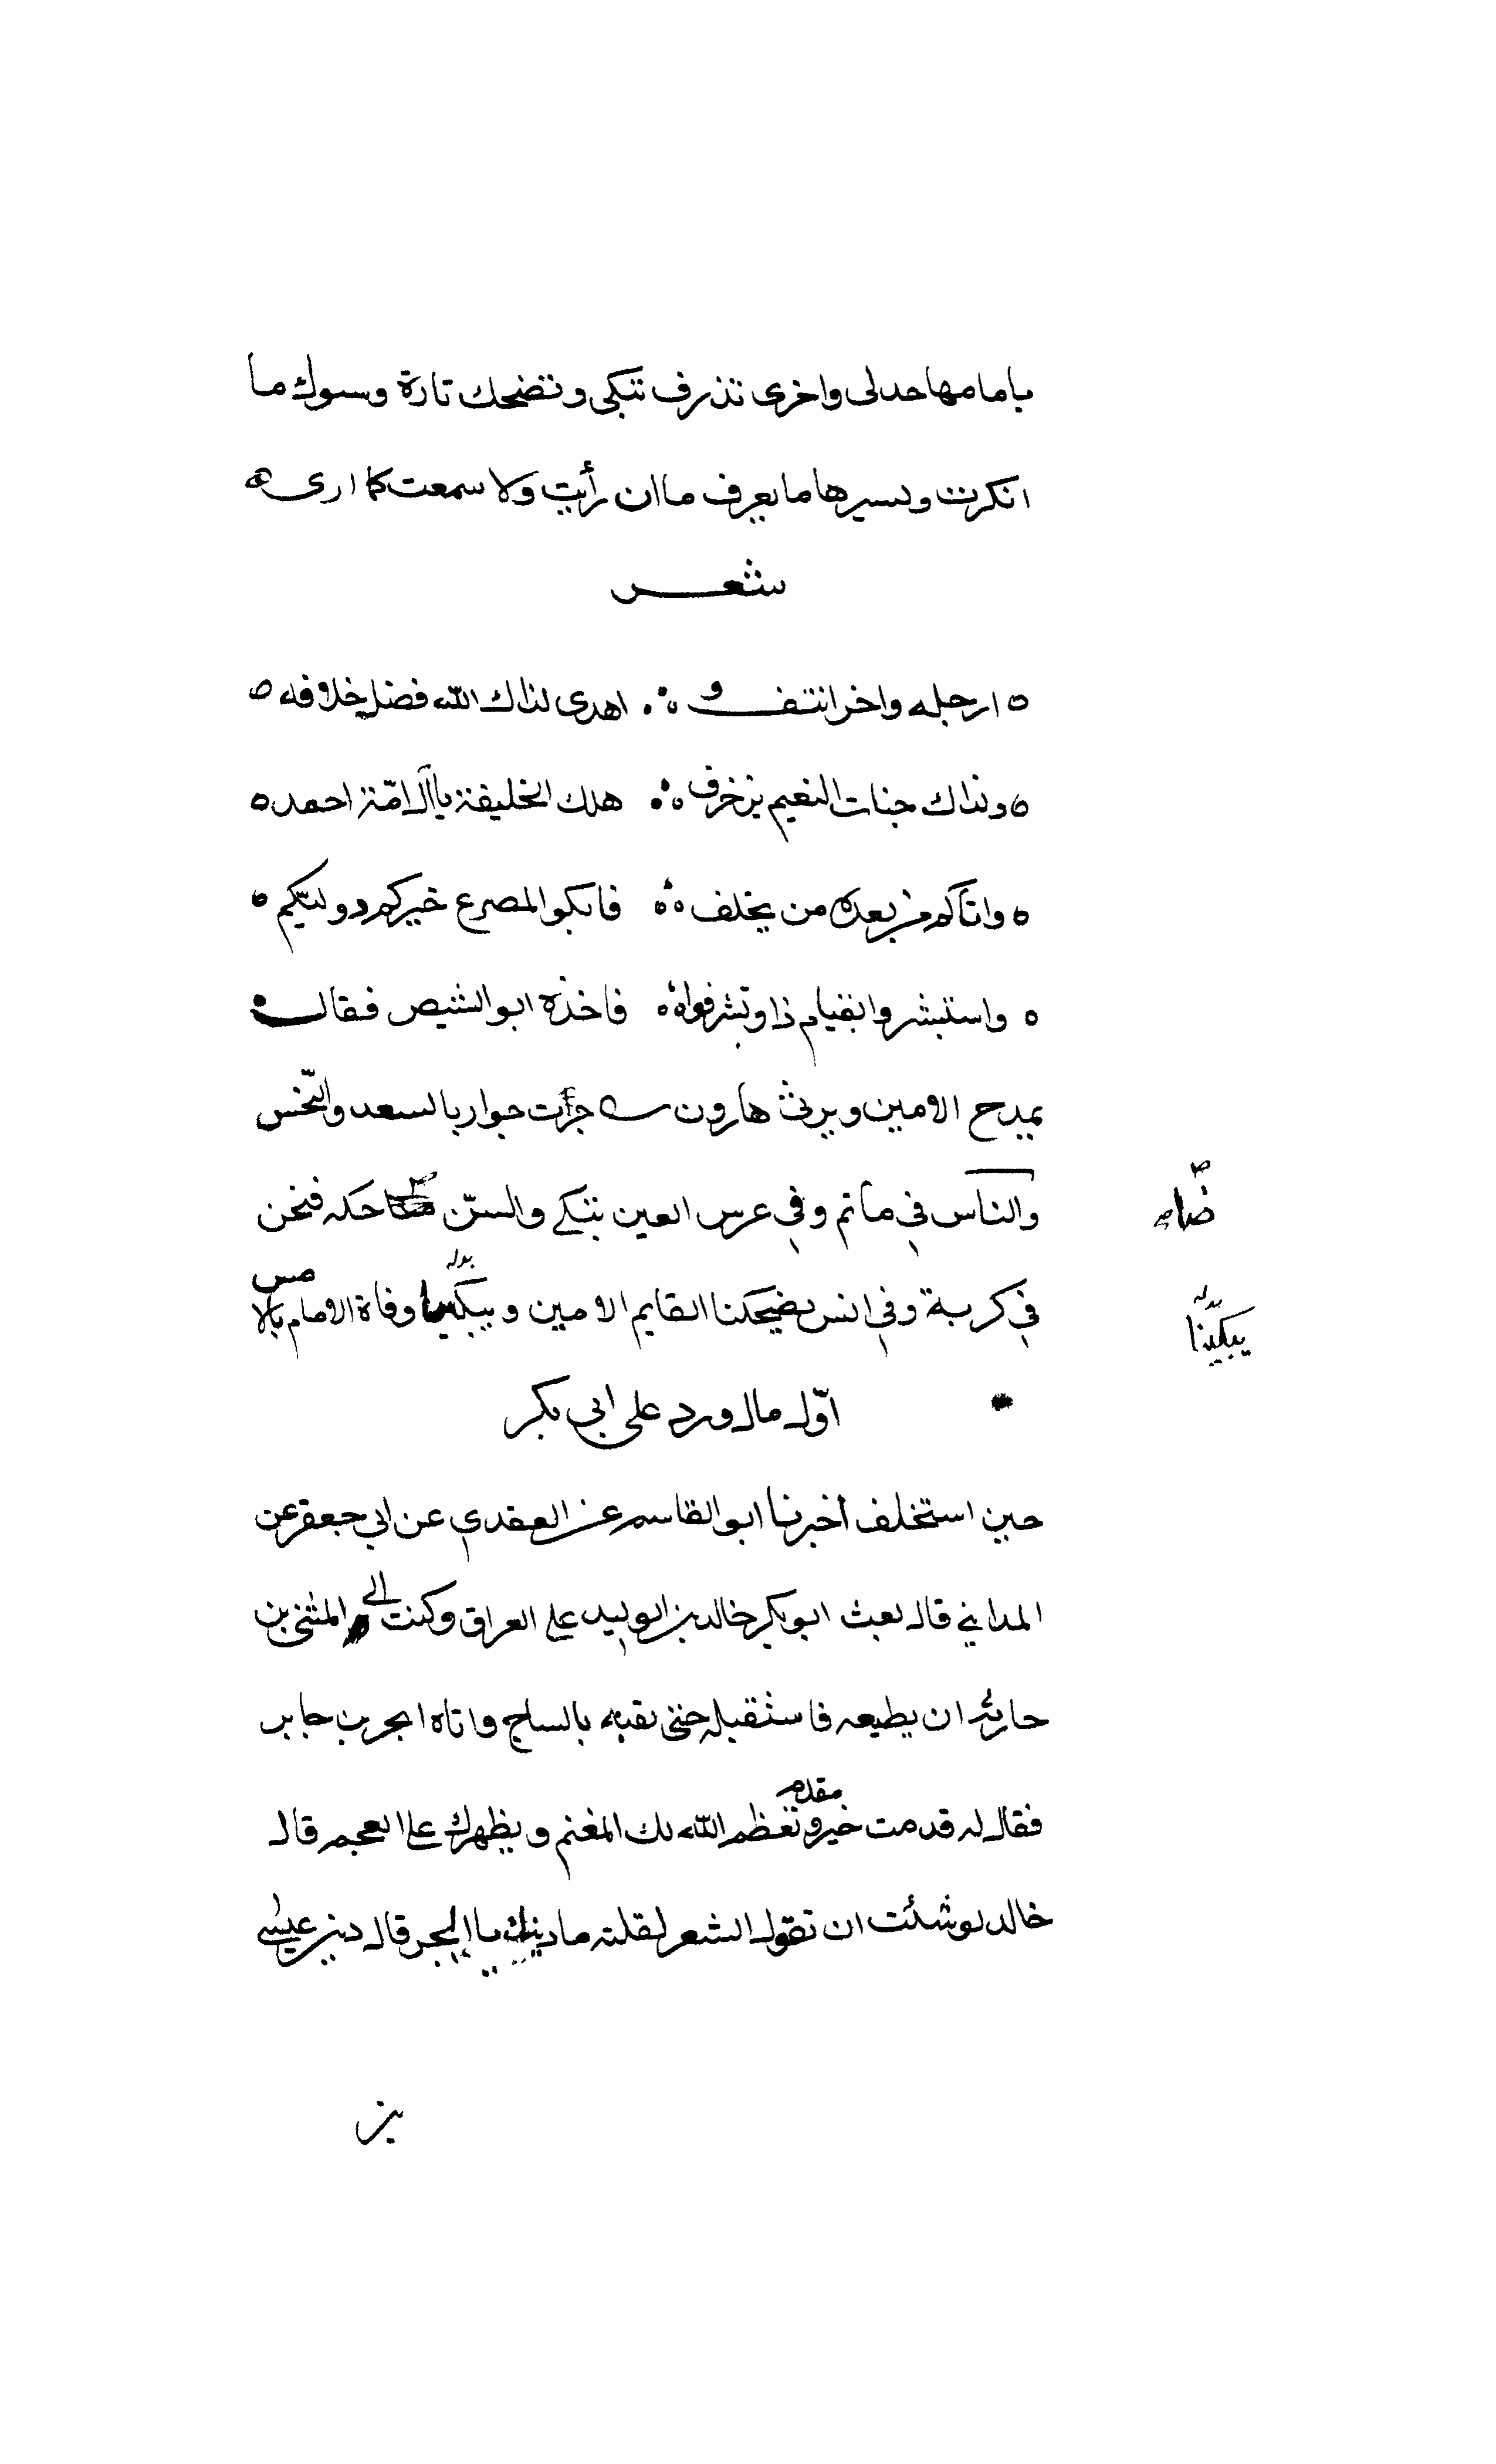 بامامها حدلى واخرى تذرف تبكى وتضحك تارة وسوك ما
انكرت وىسىرها مايعرف ماان رأيت ولا سمعت كما ارى
شعر
ارجله واخر انتف اهدى لذاك الله فضل خلافه
ولذاك جنات النعيم تزخرف هلك الخليفة يا لامّة احمد
واتاكم من بعده من يخلف فابكوا لمصرع خيركم
واستبشروا بقيام ذا وتشرفوا فاخذه ابو الشيص فقال
يمدح الامين ويرثى هارون جرأت جوار بالسعد والنّحس
والناس في ماتم وفي عرس العين تبكي والسنّ ضاحكه فنحن
ضا صح
في كربة وفي انس يضحكنا القايم الامين ويبكّينا وفاة الامام بالامس
يبكّينا
اوّل مال ورد على ابي بكر
حين استخلف أخبرنا ابو القاسم عن العقدي عن ابي جعفر عن
المدايني قال بعث ابو بكر خالد بن الوليد على العراق وكتب الي المثنى بن
حارثه ان يطيعه فاستقبله حتى لقيه بالساج واتاه ابجر بن جابر
فقال له قدمت خير مقدم وتعظم الله لك المغنم ويظهرك على العجم قال
خالد لو شئت ان تقول الشعر لقلته ما دينك يا ابجر قال دين عيسى
بن